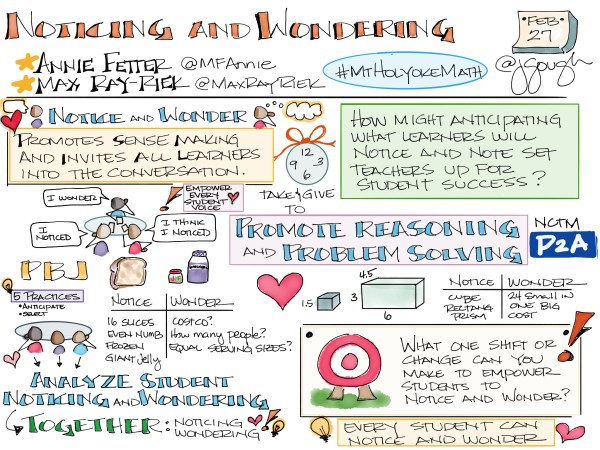 NOTICING AND WONDERING
•FEB•
27
ANNIE FETTER @MFANNIE
MAX RAY-RIEK @MAXRAYRIEK
#MTHOLYOKEMATH
@jgough
NOTICE AND WONDER
PROMOTES SENSE MAKING
AND INVITES ALL LEARNERS
INTO THE CONVERSATION.
12
9 3
6
TAKE & GIVE
TO
HOW MIGHT ANTICIPATING
WHAT LEARNERS WILL
NOTICE AND NOTE SET
TEACHERS UP FOR
STUDENT SUCCESS?
I WONDER
EMPOWER
EVERY
STUDENT
VOICE
I
NOTICED
I THINK
I NOTICED
PROMOTE REASONING
AND PROBLEM SOLVING
NCTM
P2A
PBJ
5 PRACTICES
•ANTICIPATE
•SELECT
NOTICE WONDER
16 SLICES COSTCO?
EVEN NUMB HOW MANY PEOPLE?
FROZEN EQUAL SERVING SIZES?
GIANT JELLY
1.5
4.5
3
6
NOTICE WONDER
CUBE 24 SMALL IN
RECTANG ONE BIG
PRISM COST
ANALYZE STUDENT
NOTICING AND WONDERING
TOGETHER: NOTICING
WONDERING
WHAT ONE SHIFT OR
CHANGE CAN YOU
MAKE TO EMPOWER
STUDENTS TO
NOTICE AND WONDER?
EVERY STUDENT CAN
NOTICE AND WONDER